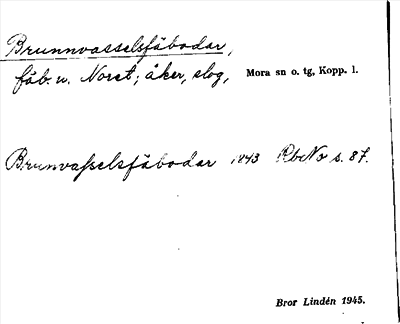 Brunnvasselsfäbodar,
fäb. u. Noret; åker, slog, Mora sn o. tg, Kopp. l.
Brunvasselsfäbodar 1843 RbNo s. 87.
Bror Lindén 1945.